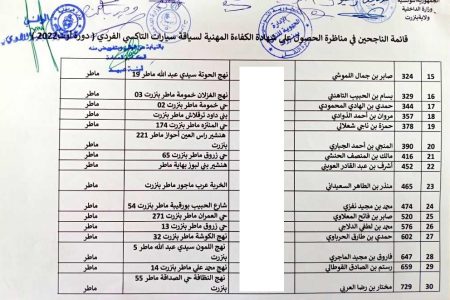 الجمهورية التونسية
وزارة الداخلية
ولاية بنزرت
قائمة الناجحين في مناظرة الحصول على شهادة الكفاءة المهنية لسياقة سيارات التاكسي الفردي ( دورة أوت 2022 )
15 324 صابر بن جمال القموشي نهج الحوتة سيدي عبد الله ماطر 19 ماطر
16 329 بسام بن الحبيب التاهنتي نهج الغزلان خمومة ماطر بنزرت 03 ماطر
17 344 حمدي بن الهادي المحمودي حي خمومة ماطر بنزرت 02 ماطر
18 357 مروان بن أحمد الذوادي بني داود ترقلاش ماطر بنزرت ماطر
19 378 حمزة بن ناجي شعلالي حي المنتزه ماطر بنزرت 174 ماطر
20 390 المنجي بن أحمد الجباري هنشير راس العين أحواز ماطر 221 بنزرت ماطر
21 416 مالك بن المنصف الحنشي حي زروق ماطر بنزرت 65 ماطر
22 452 أشرف بن عبد القادر العويني هنشير بني ليوز بهاية ماطر ماطر
23 465 منذر بن الطاهر السعيداني الخربة عرب ماجور ماطر بنزرت ماطر
24 474 محمد بن مجيد نفزي شارع الحبيب بورقيبة ماطر بنزرت 54 ماطر
25 520 صابر بن فاتح المعلاوي حي العمران ماطر بنزرت 271 ماطر
26 576 محمد بن لطفي الدلاجي حي زروق ماطر بنزرت 13 ماطر
28 602 حمدي بن طارق الحرباوي نهج الكوشة ماطر بنزرت 32 ماطر
27 647 فاروق بن مجيد الماجري نهج اللمون سيدي عبد الله ماطر 5 بنزرت ماطر
29 659 رستم بن الصادق القوطالي نهج محمد علي ماطر بنزرت 14 ماطر
30 729 مختار بن رضا العربي نهج النظافة حي الصداقة ماطر 55 بنزرت ماطر